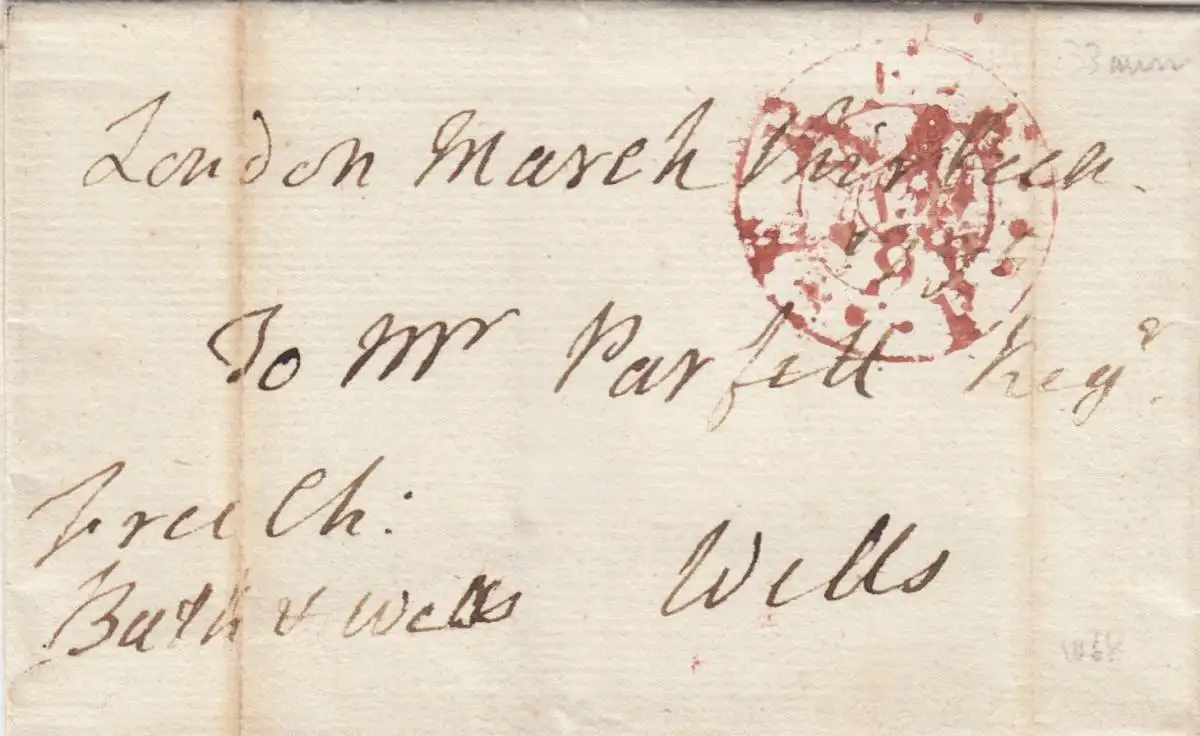 London March thirteen
To Mr Parfitt Regr.
Free Ch:
Bath & Wells
Wells